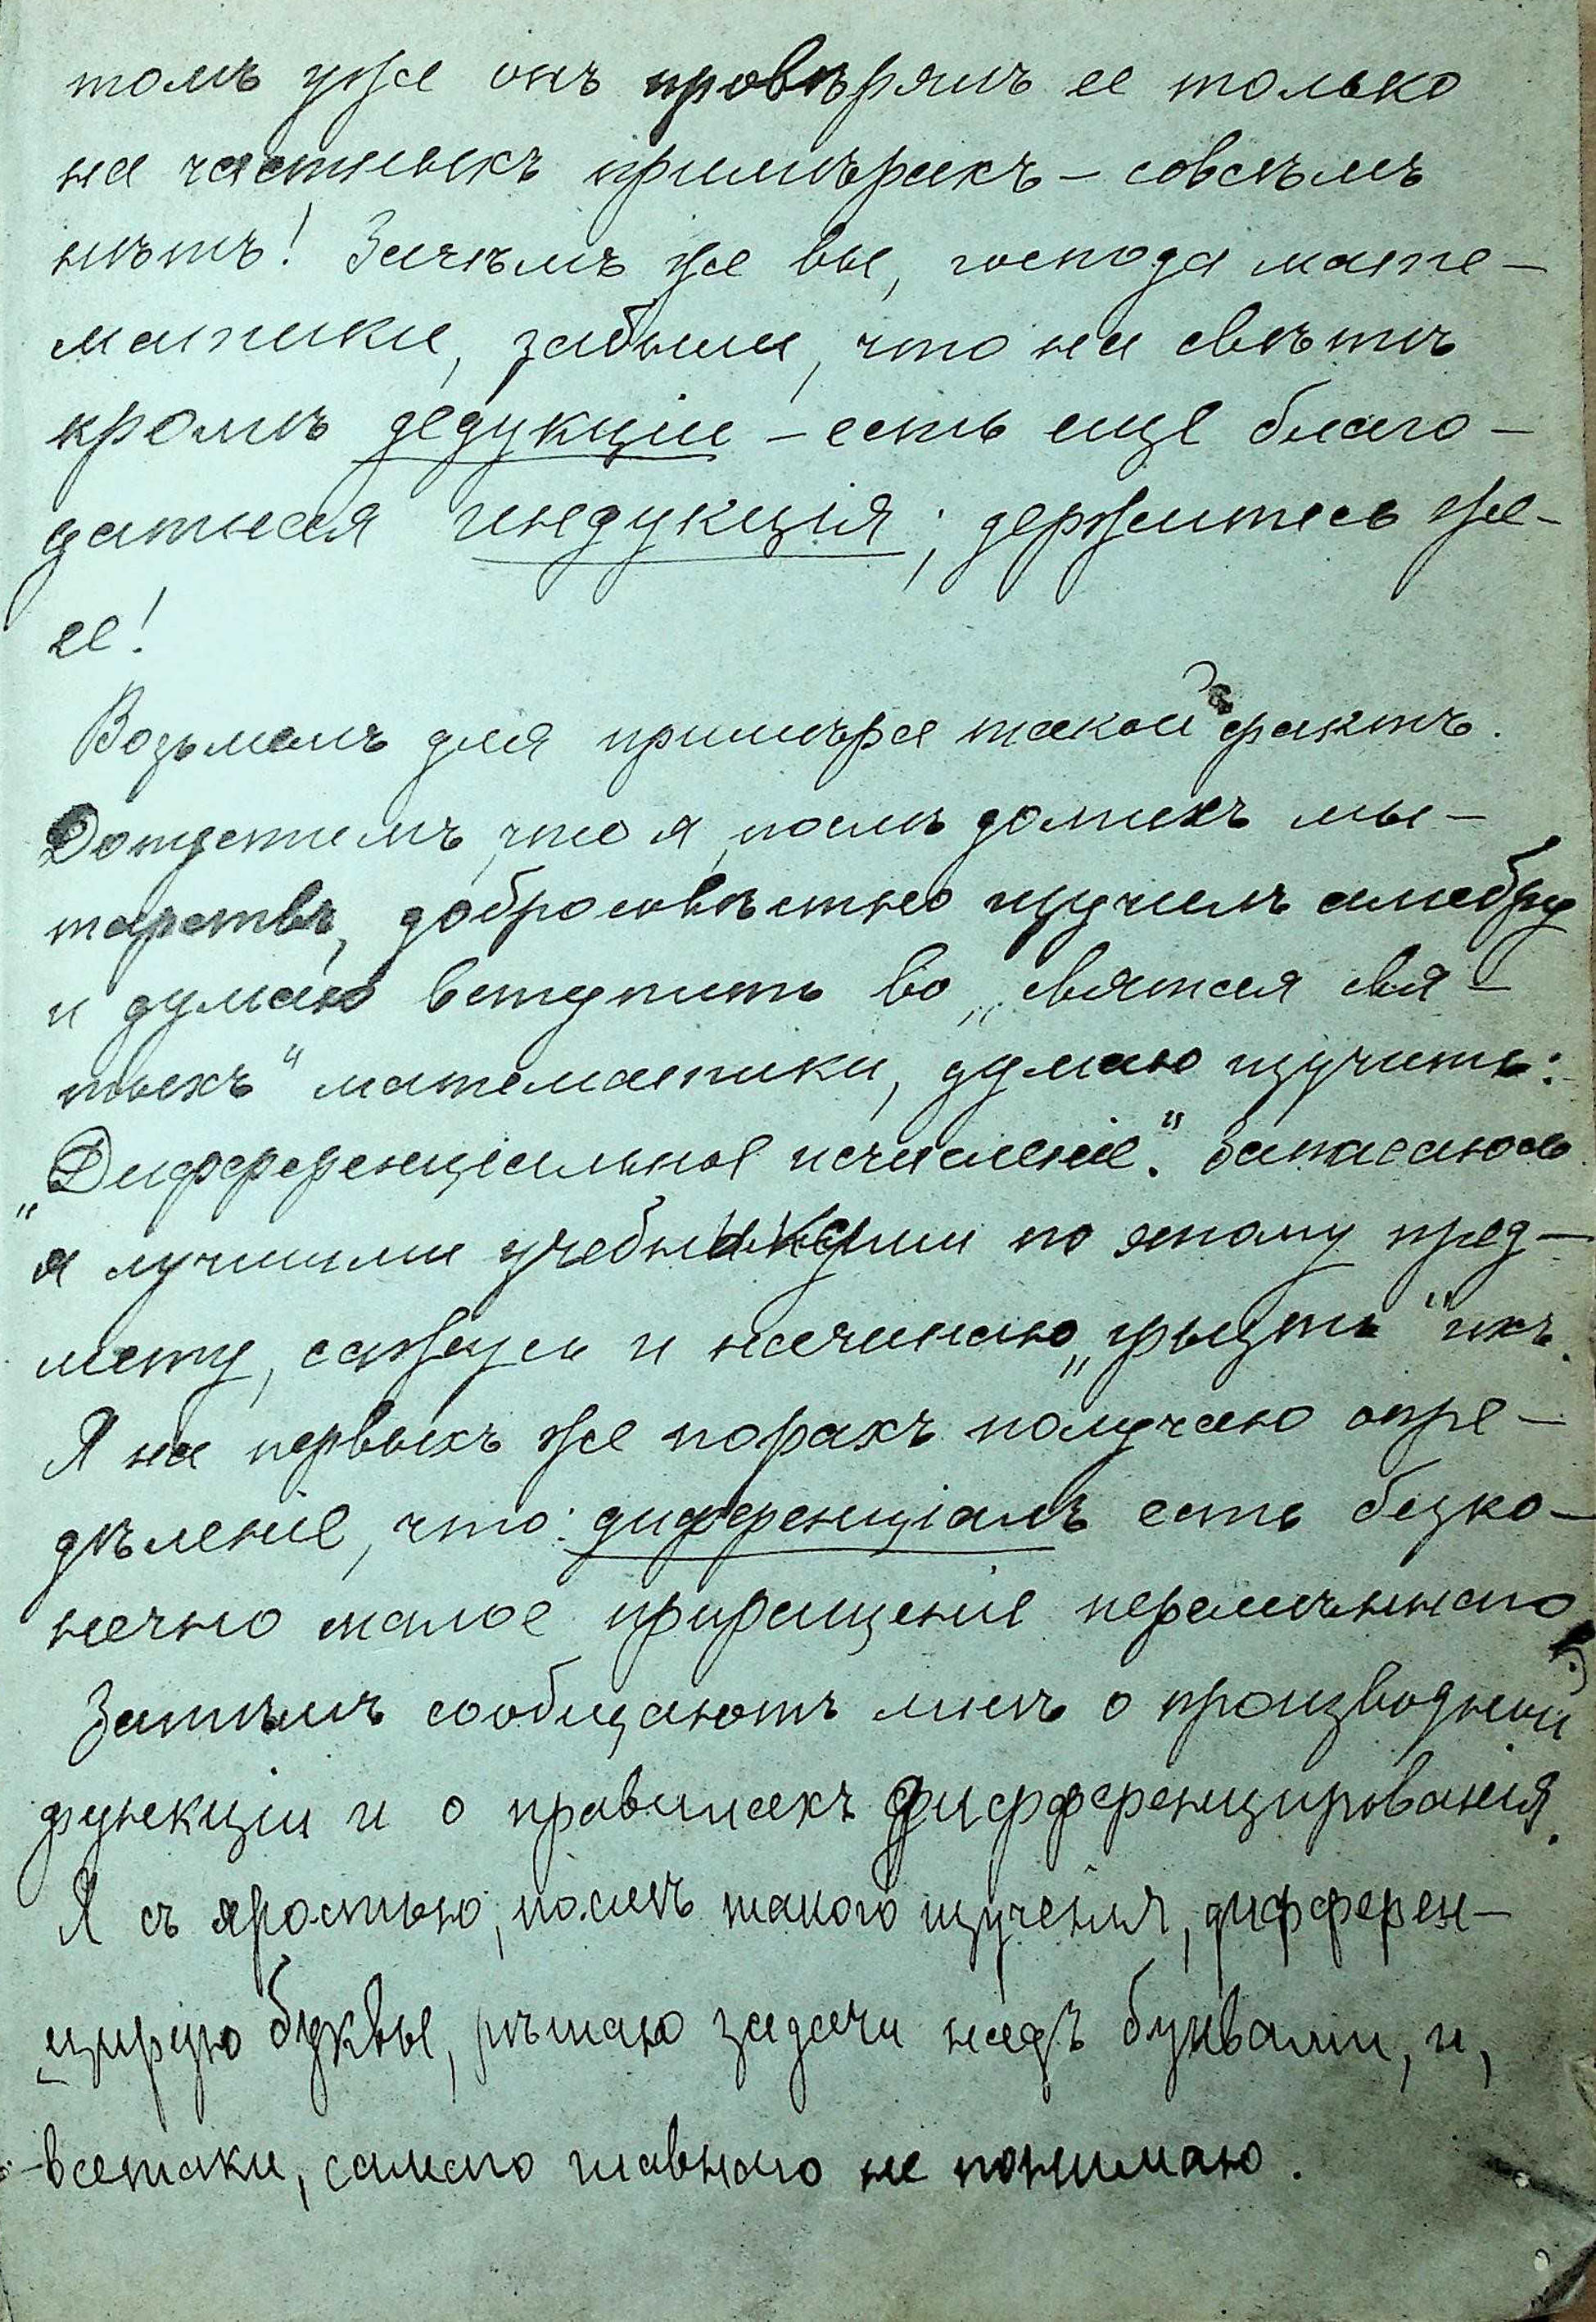 томъ уже онъ провѣрялъ ее только
на частныхъ примѣрахъ – совсѣмъ
нѣтъ! Зачѣмъ же вы, господа мате-
матики, забыли, что на свѣтѣ
кромѣ дедукціи – есть еще благо-
датная индукція; держитесь же-
ее!
Возьмемъ для примѣра такой фактъ.
Допустимъ, что я, послѣ долгихъ мы-
тарствъ, добросовѣстно изучилъ алгебру
и думаю вступить во „святая свя-
тыхъ“ математики, думаю изучить:
„Дифференціальное исчисленіе“. Запасаюсь
я лучшими учебниками по этому пред-
мету, сажусь и начинаю „грызть“ ихъ.
Я на первыхъ же порахъ получаю опре-
дѣленіе, что: дифференціалъ есть безко-
нечно малое приращеніе перемѣннаго
Затѣмъ сообщаютъ мнѣ о производной
функціи и о правилахъ дифференцированія.
Я съ яростью, послѣ такого изученія, дифферен-
цирую буквы, рѣшаю задачи надъ буквами, и,
всетаки, самаго главнаго не понимаю.